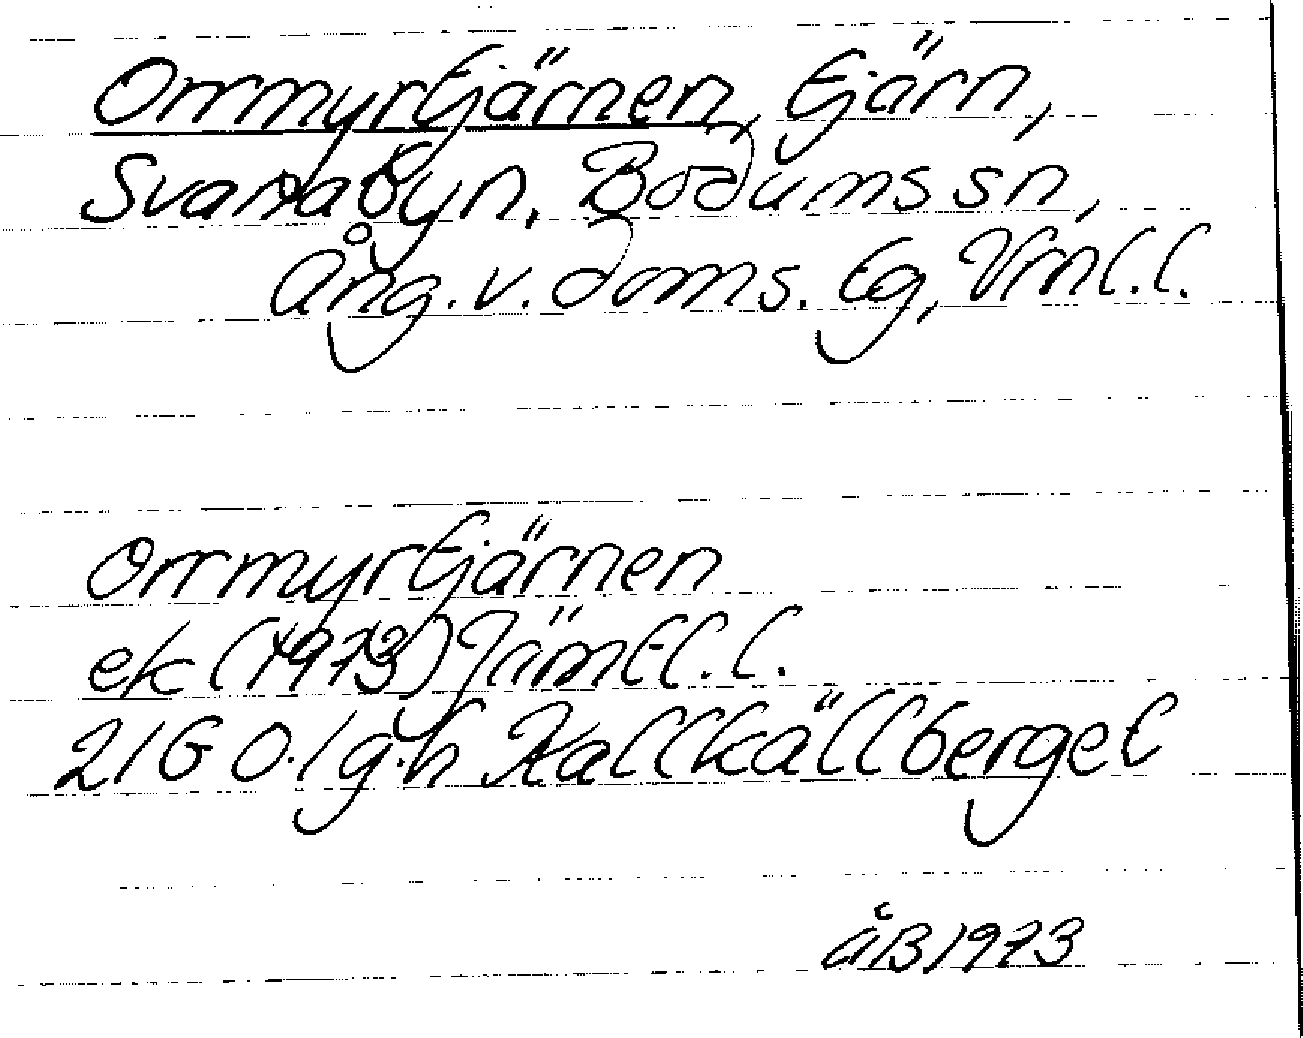 Orrmyrtjärnen, tjärn,
Svanabyn, Bodums sn,
Ång. v. doms. tg, Vrnl. l.
Orrmyrtjärnen
ek (1973) Jämtl. l.
21G 0. l g. h Kallkällberget
åB 1973